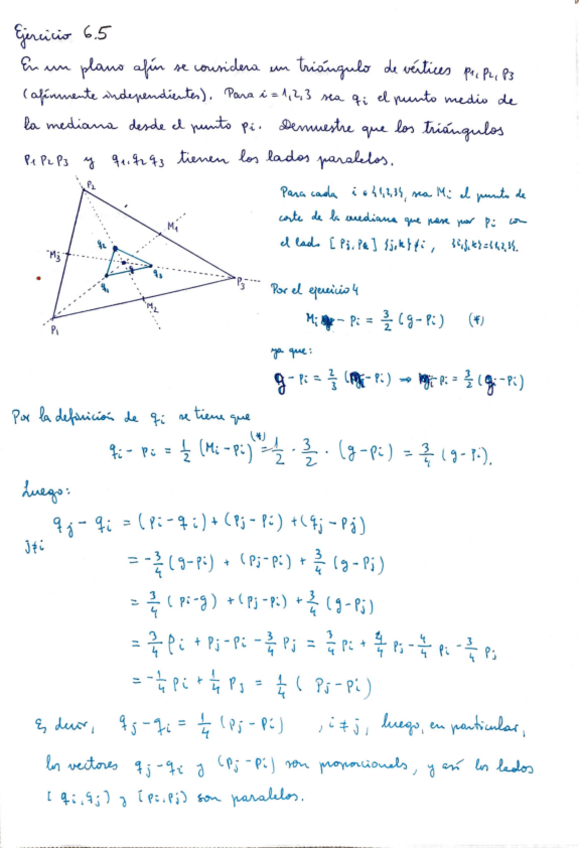 Ejercicio 6.5
En un plano afín se considera un triángulo de vértices p₁, p₂, p₃
(afínmente independientes). Para i = 1,2,3 sea qᵢ el punto medio de
la mediana desde el punto pᵢ. Demuestre que los triángulos
p₁ p₂ p₃ y q₁, q₂ q₃ tienen los lados paralelos.
P₂
M₁
M₃
q₂
g
q₃
q₁
P₃
M₂
P₁
Para cada i ∈ {1,2,3}, sea Mᵢ el punto de
corte de la mediana que pasa por pᵢ con
el lado [Pⱼ, Pₖ] {j,k} ≠ i, {i,j,k}={1,2,3}.
Por el ejercicio 4
Mᵢ - pᵢ = 3/2 (g - pᵢ) (*)
ya que:
g - pᵢ = 2/3 ( - pᵢ) ⇒ - pᵢ = 3/2 (g - pᵢ)
Por la definición de qᵢ se tiene que
qᵢ - pᵢ = 1/2 (Mᵢ - pᵢ) (*)= 1/2 · 3/2 · (g - pᵢ) = 3/4 (g - pᵢ).
Luego:
qⱼ - qᵢ = (pᵢ - qᵢ) + (pⱼ - pᵢ) + (qⱼ - pⱼ)
j≠i
= -3/4 (g - pᵢ) + (pⱼ - pᵢ) + 3/4 (g - pⱼ)
= 3/4 (pᵢ - g) + (pⱼ - pᵢ) + 3/4 (g - pⱼ)
= 3/4 pᵢ + pⱼ - pᵢ - 3/4 pⱼ = 3/4 pᵢ + 4/4 pⱼ - 4/4 pᵢ - 3/4 pⱼ
= -1/4 pᵢ + 1/4 pⱼ = 1/4 (pⱼ - pᵢ)
Es decir, qⱼ - qᵢ = 1/4 (pⱼ - pᵢ) , i ≠ j, luego, en particular,
los vectores qⱼ - qᵢ y (pⱼ - pᵢ) son proporcionales, y así los lados
[qᵢ, qⱼ] y [pᵢ, pⱼ] son paralelos.